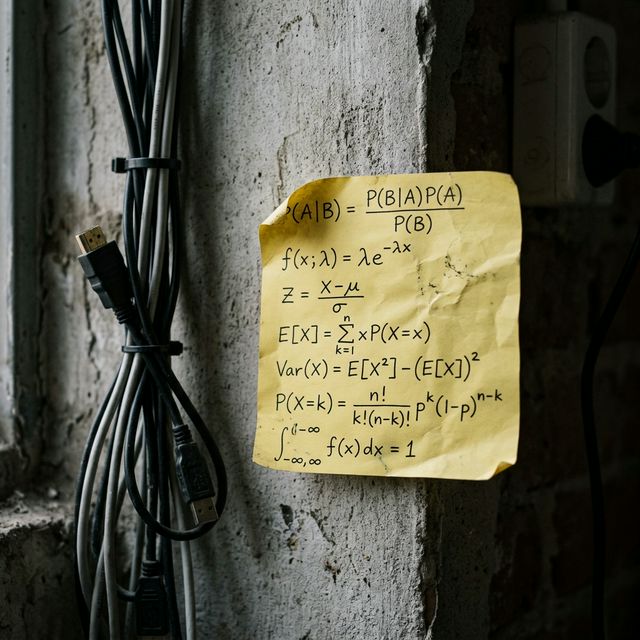 P(A|B) = P(B|A)P(A) / P(B)
f(x;λ) = λe^{-λx}
Z = (X-μ) / σ
E[X] = ∑_{k=1}^{n} xP(X=x)
Var(X) = E[X²] - (E[X])²
P(X=k) = n! / k!(n-k)! p^k(1-p)^{n-k}
∫_{-∞,∞} f(x)dx = 1